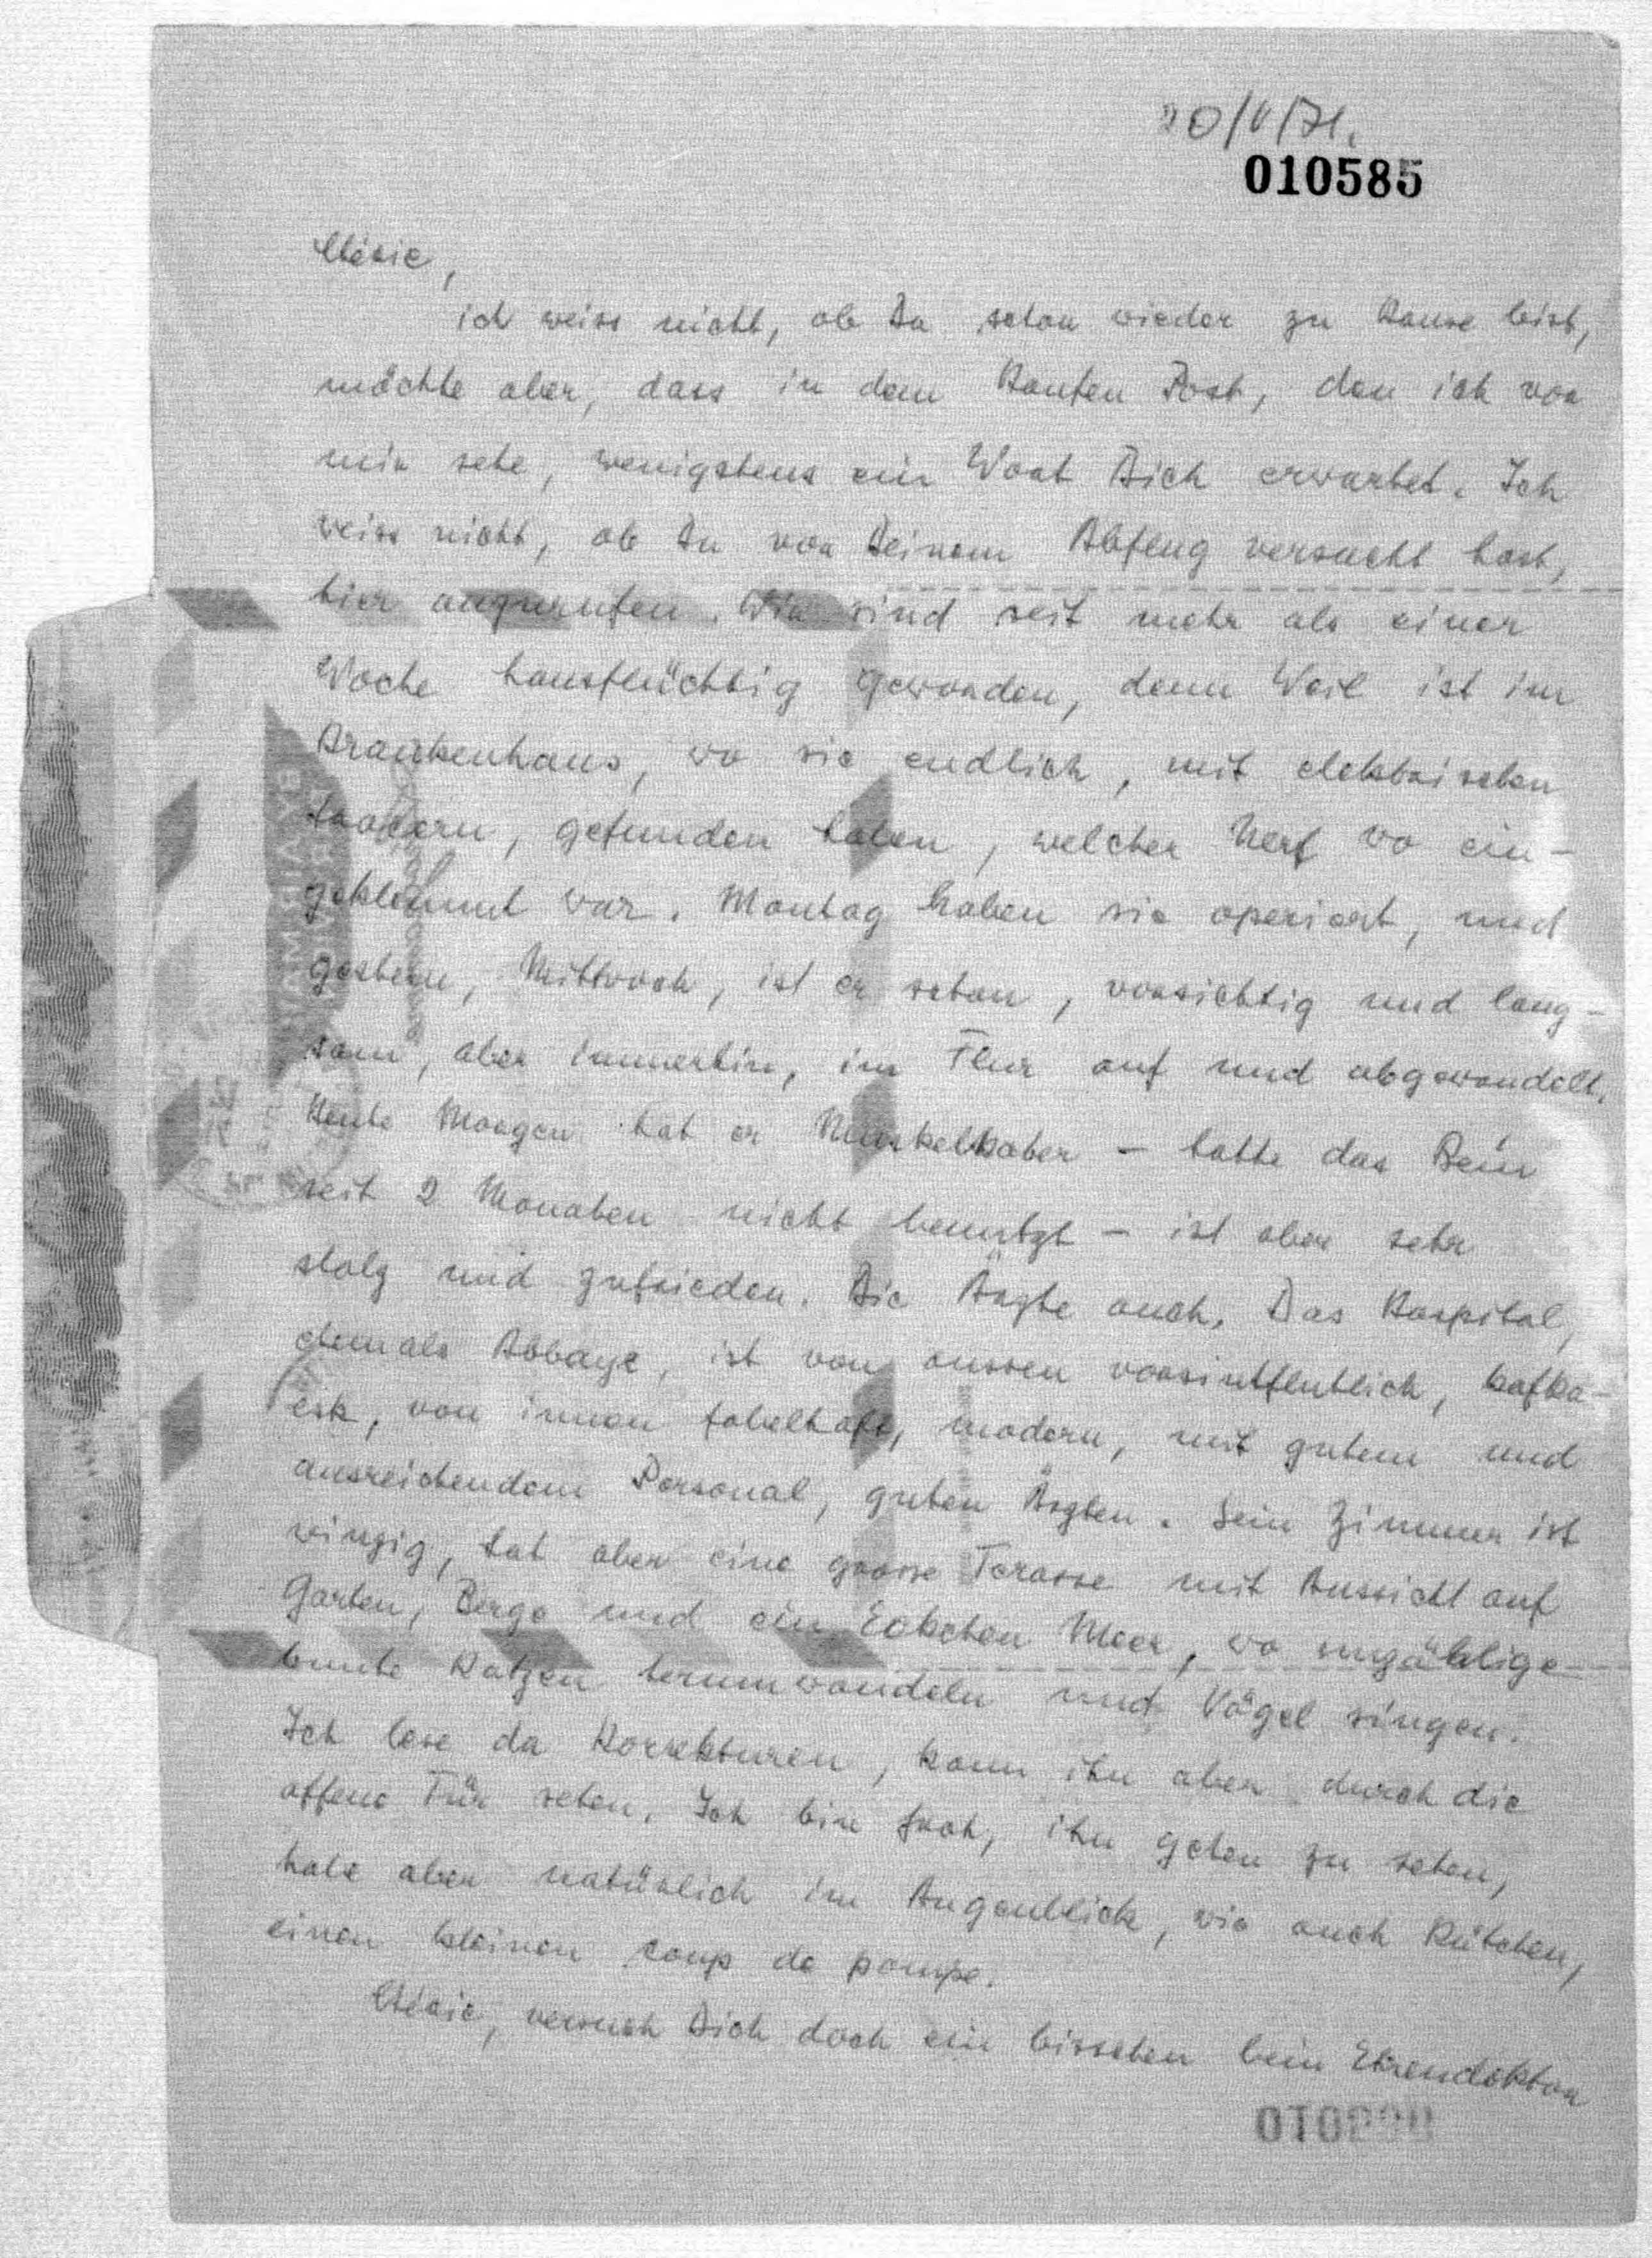 20/V/71.
010585
Chérie,
ich weiss nicht, ob Du schon wieder zu Hause bist,
möchte aber, dass in dem Haufen Post, den ich vor
mir sehe, wenigstens ein Wort Dich erwartet. Ich
weiss nicht, ob Du vor Deinem Abflug versucht hast,
hier anzurufen. Wir sind seit mehr als einer
Woche hausflüchtig geworden, denn Weil ist im
Krankenhaus, wo sie endlich, mit elektrischen
gefunden haben, welcher Nerf wo ein-
geklemmt war. Montag haben sie operiert, und
gestern, Mittwoch, ist er schon, vorsichtig und lang-
sam, aber immerhin, im Flur auf und abgewandelt.
Heute Morgen hat er Muskelkater - hatte das Bein
seit 2 Monaten nicht benutzt - ist aber sehr
stolz und zufrieden. Die Ärzte auch. Das Hospital,
ehemals Abbaye, ist von aussen vorsintflutlich, kafka-
esk, von innen fabelhaft, modern, mit gutem und
ausreichendem Personal, guten Ärzten. Sein Zimmer ist
winzig, hat aber eine grosse Terasse mit Aussicht auf
Garten, Berge und ein Eckchen Meer, wo unzählige
bunte Katzen herumwandeln und Vögel singen.
Ich lese da Korrekturen, kann ihn aber durch die
offene Tür sehen. Ich bin froh, ihn gehen zu sehen,
habe aber natürlich im Augenblick, wie auch Rütchen,
einen kleinen coup de pompe.
Chérie, versuch Dich doch ein bisschen beim Ehrendoktor